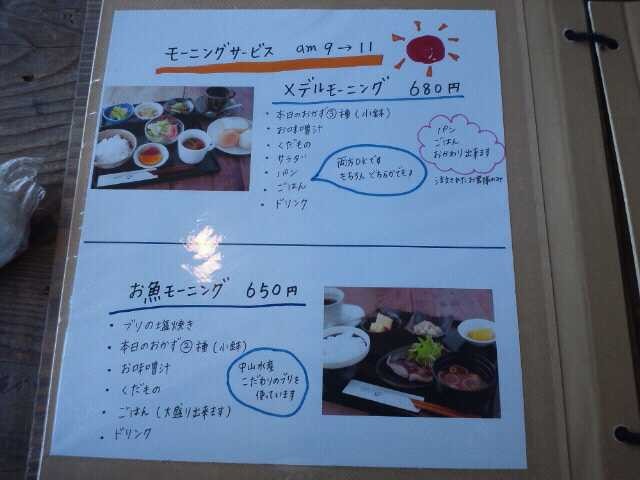 モーニングサービス am 9→11
メデルモーニング 680円
・本日のおかず③種(小鉢)
・お味噌汁
・くだもの
・サラダ
・パン
・ごはん
・ドリンク
両方OKです
もちろんどちらかでも♪
パン
ごはん
おかわり出来ます
注文されたお客様のみ
お魚モーニング 650円
・ブリの塩焼き
・本日のおかず②種(小鉢)
・お味噌汁
・くだもの
・ごはん(大盛り出来ます)
・ドリンク
中山水産
こだわりのブリを
使っています